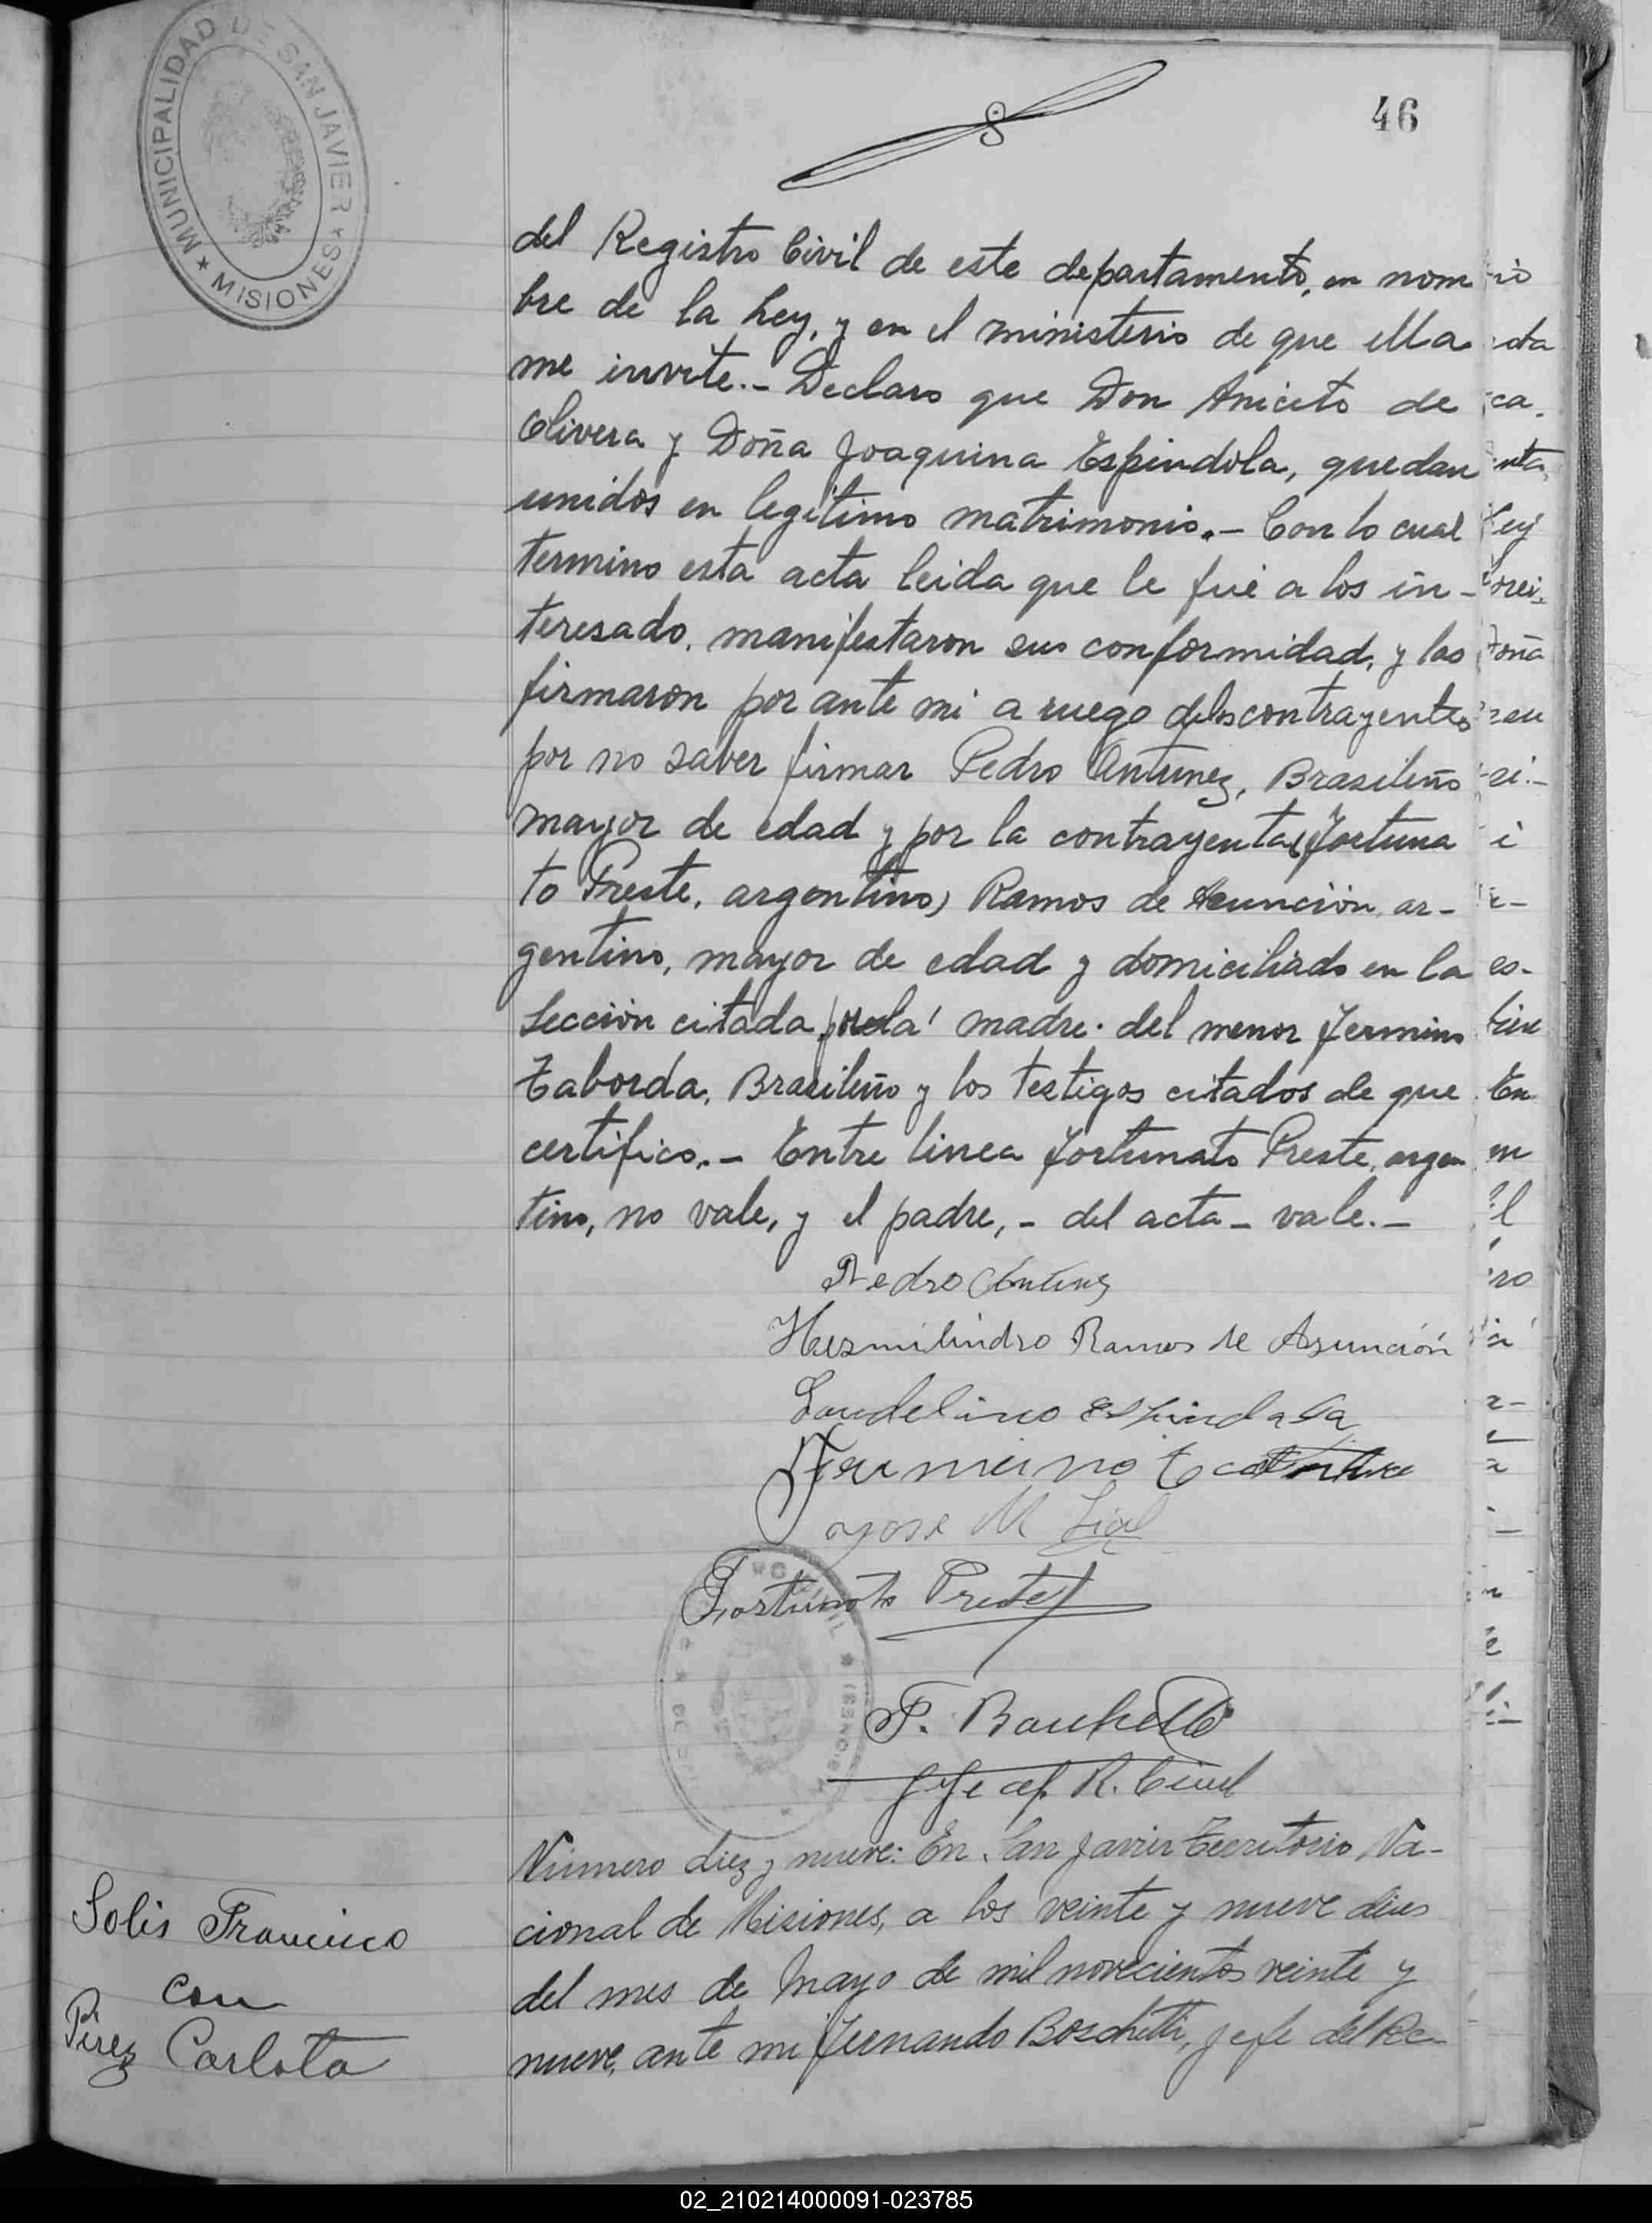 MUNICIPALIDAD DE SAN JAVIER
★ MISIONES ★
46
del Registro Civil de este departamento, en nom
bre de la Ley, y en el ministerio de que ella
me invite.- Declaro que Don Aniceto de
Olivera y Doña Joaquina Espindola, quedan
unidos en legitimo matrimonio.- Con lo cual
termino esta acta leida que le fué a los in-
teresado, manifestaron sus conformidad, y las
firmaron por ante mi a ruego de los contrayentes
por no saber firmar Pedro Antunez, Brasileño
mayor de edad y por la contrayenta (Fortuna
to Preste, argentino) Ramos de Asunción, ar-
gentino, mayor de edad y domiciliado en la
Sección citada, por la madre del menor Fermino
Taborda, Brasileño y los testigos citados de que
certifico.- Entre linea Fortunato Preste, argen
tino, no vale, y el padre, - del acta - vale.-
Pedro Antunez
Hermilindro Ramos de Asunción
Laudelino Espindola
Fortunato Preste
F. Boschetti
Jefe del R. Civil
Número diez y nueve: En San Javier Territorio Na-
cional de Misiones, a los veinte y nueve dias
del mes de Mayo de mil novecientos veinte y
nueve, ante mi Fernando Boschetti, Jefe del Re-
Solis Francisco
con
Pérez Carlota
02_210214000091-023785